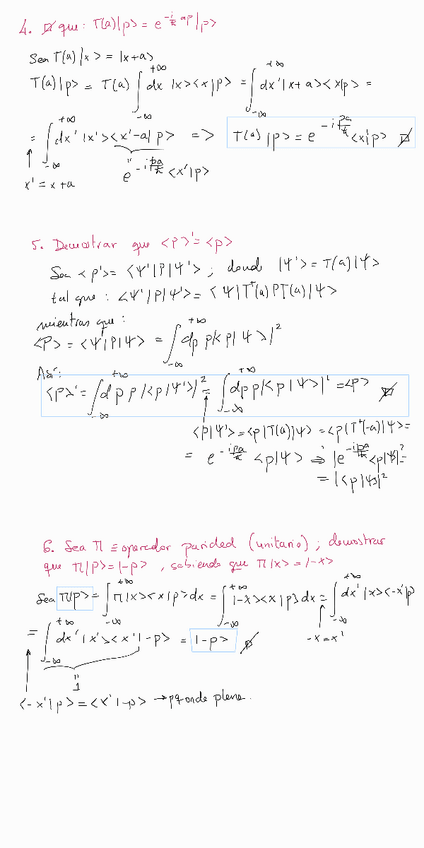 4. que: T(a)|p> = e^{-i/ħ ap}|p>
Sea T(a)|x> = |x+a>
T(a)|p> = T(a) ∫_{-∞}^{+∞} dx |x><x|p> = ∫_{-∞}^{+∞} dx'|x+a><x|p> =
= ∫_{-∞}^{+∞} dx' |x'><x'-a|p> => T(a)|p> = e^{-i pa/ħ} <x|p>
x' = x+a e^{-i pa/ħ} <x'|p>
5. Demostrar que <P>' = <p>
Sea <p'> = <Ψ'|P|Ψ'> ; donde |Ψ'> = T(a)|Ψ>
tal que: <Ψ'|P|Ψ'> = <Ψ|T⁺(a) P T(a)|Ψ>
mientras que:
<P> = <Ψ|P|Ψ> = ∫_{-∞}^{+∞} dp p|<p|Ψ>|²
Así:
<p>' = ∫_{-∞}^{+∞} dp p |<p|Ψ'>|² = ∫_{-∞}^{+∞} dp p|<p|Ψ>|² = <p>
<p|Ψ'> = <p|T(a)|Ψ> = <p|T⁺(-a)|Ψ> =
= e^{-ipa/ħ} <p|Ψ> => |e^{-ipa/ħ} <p|Ψ>|² =
= |<p|Ψ>|²
6. Sea Π ≡ operador paridad (unitario) ; demostrar
que Π|p> = |-p> , sabiendo que Π|x> = |-x>
Sea Π|p> = ∫_{-∞}^{+∞} Π|x><x|p> dx = ∫_{-∞}^{+∞} |-x><x|p> dx = ∫_{-∞}^{+∞} dx' |x><-x'|p>
= ∫_{-∞}^{+∞} dx' |x'><x'|-p> = |-p> -x = x'
1
<-x'|p> = <x'|-p> → pq onda plana.